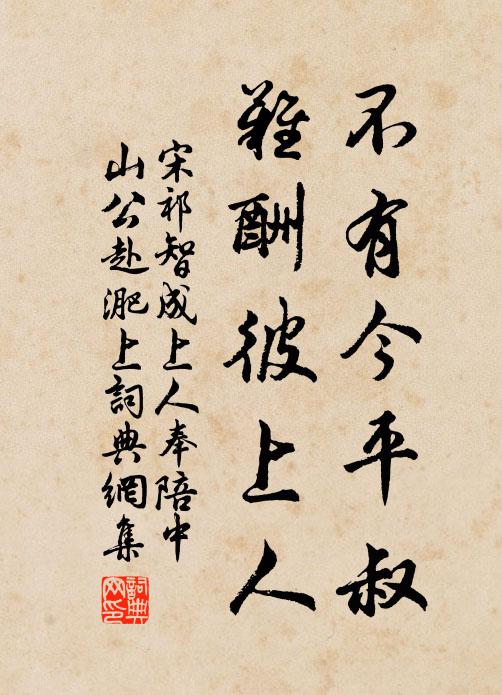 不有今平叔
難酬彼上人
宋祁智成上人奉陪中
山公赴淝上詞典網集
詞典网印